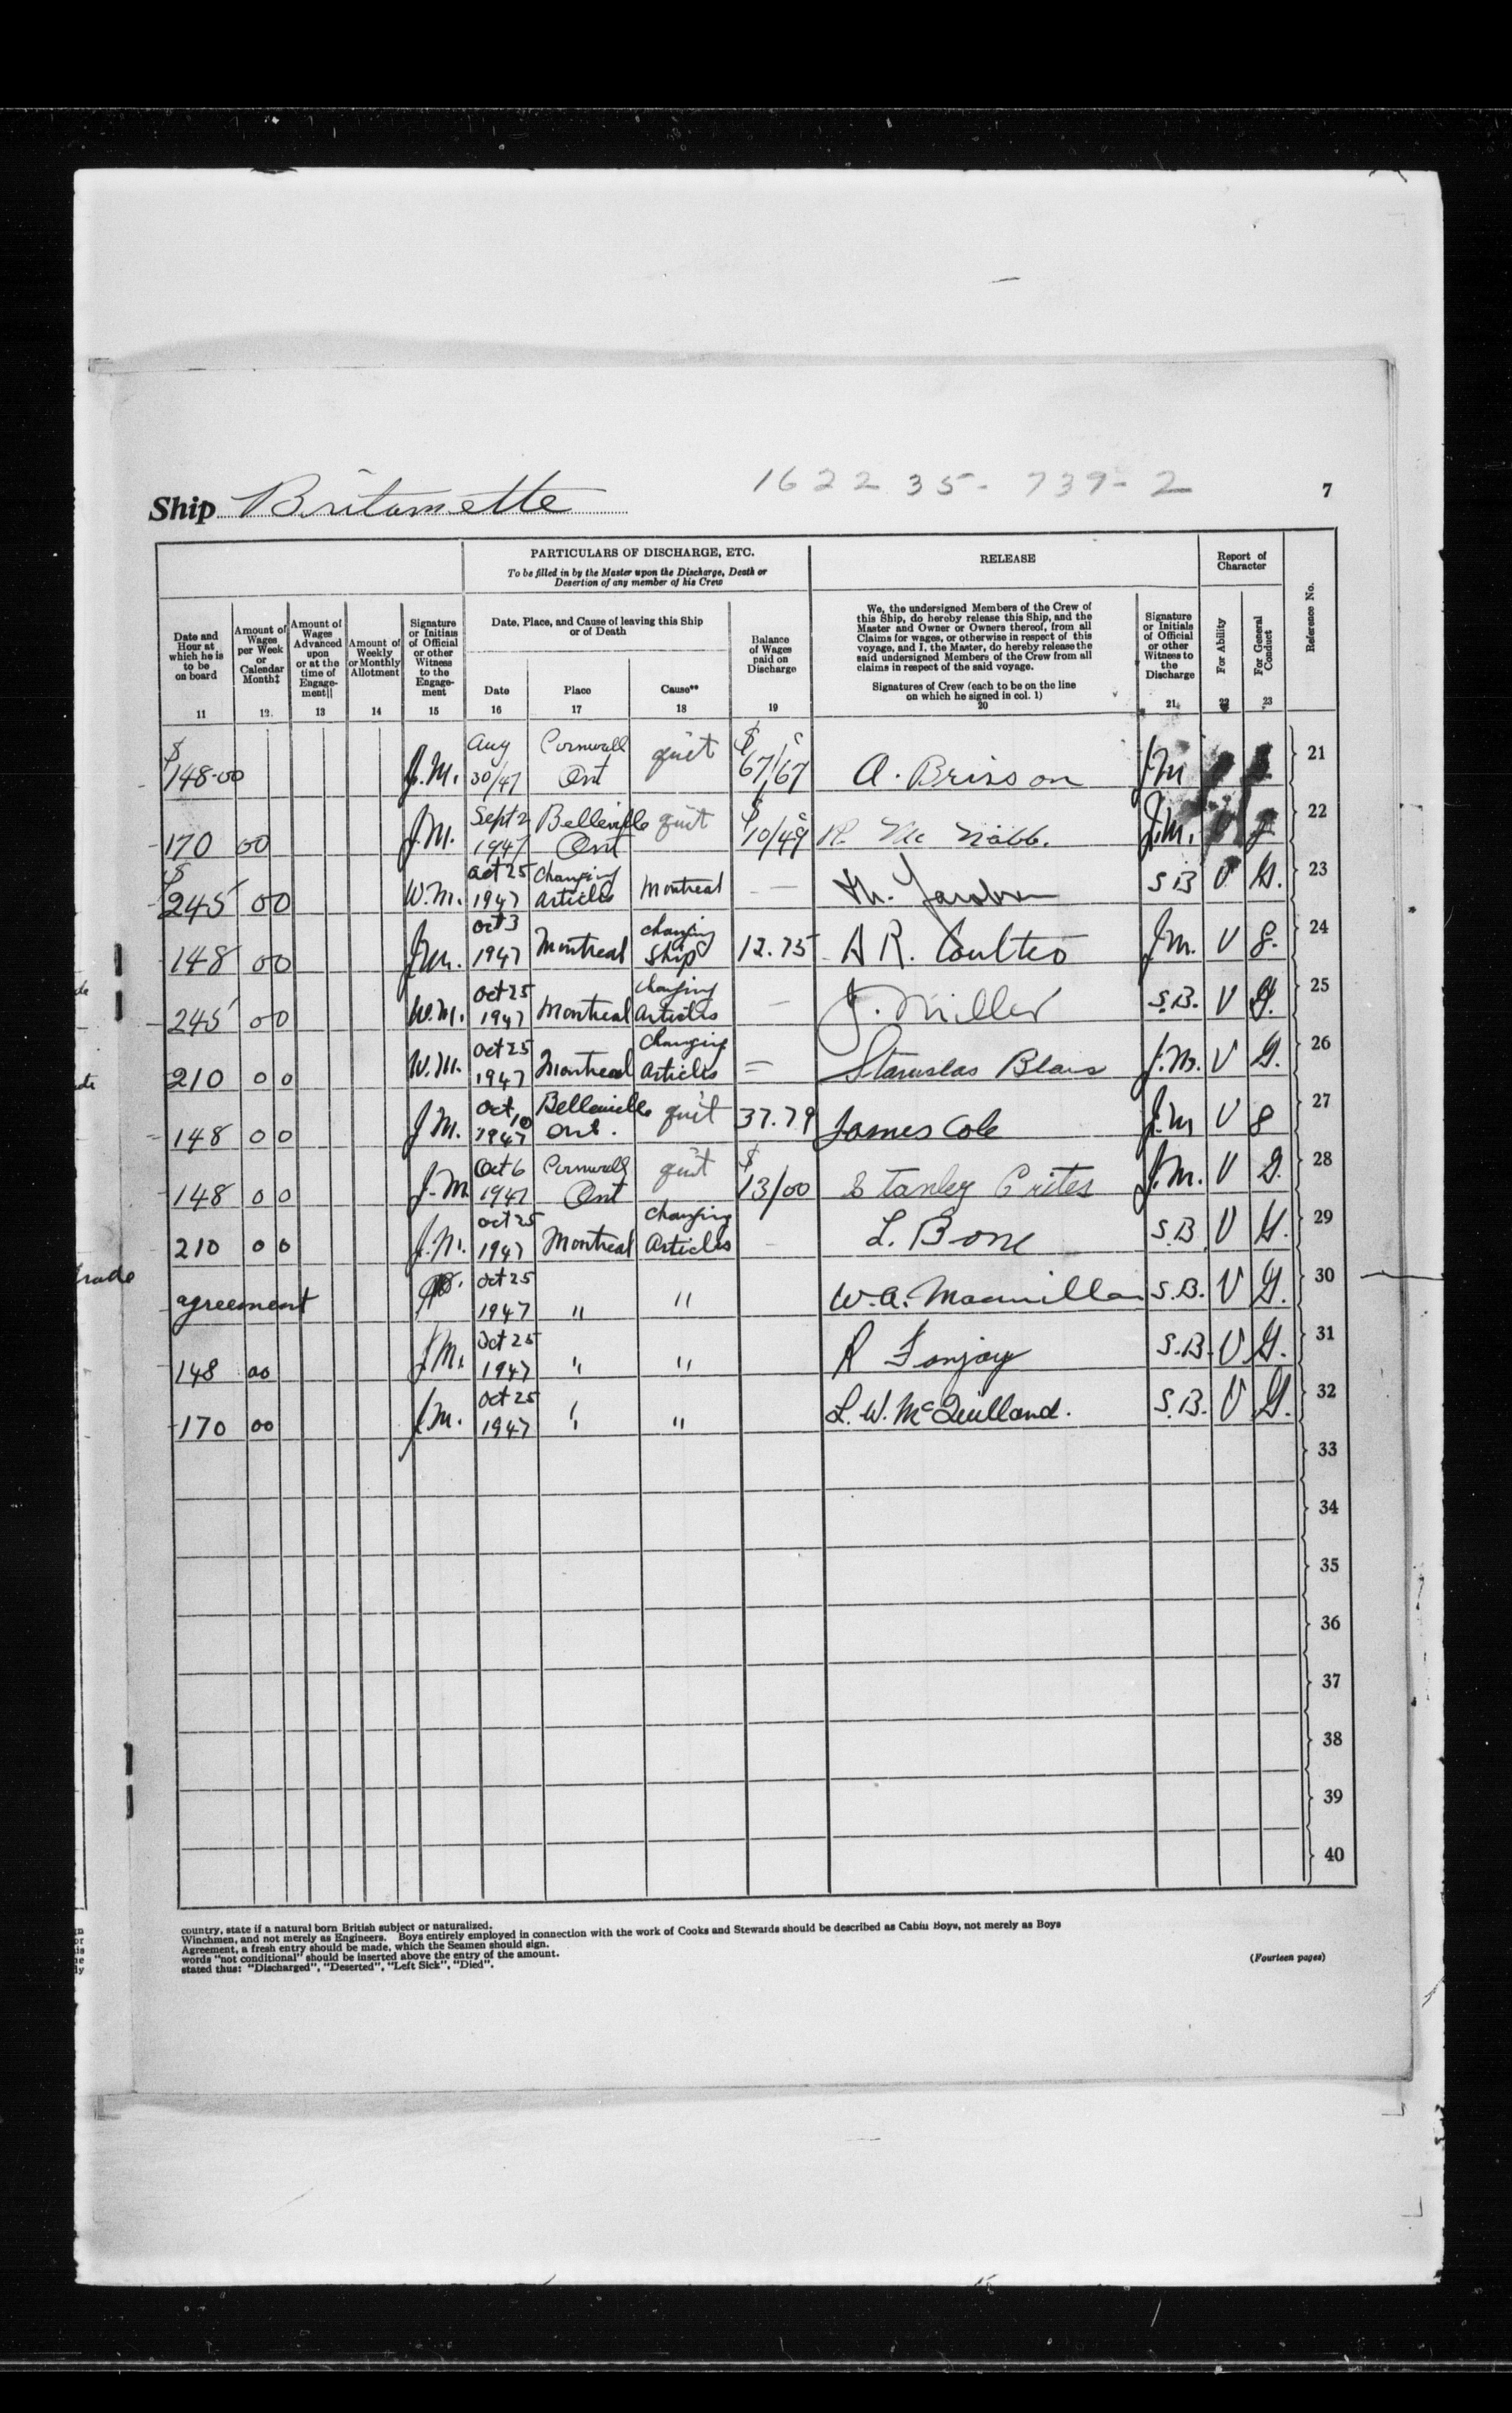 1622 35 - 739 - 2
Ship Britamette
7
PARTICULARS OF DISCHARGE, ETC.
To be filled in by the Master upon the Discharge, Death or
Desertion of any member of his Crew
RELEASE
Report of
Character
Date and
Hour at
which he is
to be
on board
11
Amount of
Wages
per Week
or
Calendar
Month‡
12.
Amount of
Wages
Advanced
upon
or at the
time of
Engage-
ment||
13
Amount of
Weekly
or Monthly
Allotment
14
Signature
or Initials
of Official
or other
Witness
to the
Engage-
ment
15
Date, Place, and Cause of leaving this Ship
or of Death
Date
16
Place
17
Cause**
18
Balance
of Wages
paid on
Discharge
19
We, the undersigned Members of the Crew of
this Ship, do hereby release this Ship, and the
Master and Owner or Owners thereof, from all
Claims for wages, or otherwise in respect of this
voyage, and I, the Master, do hereby release the
said undersigned Members of the Crew from all
claims in respect of the said voyage.
Signatures of Crew (each to be on the line
on which he signed in col. 1)
20
Signature
or Initials
of Official
or other
Witness to
the
Discharge
21
For Ability
22
For General
Conduct
23
Reference No.
$148-00 J.M. Aug 30/47 Cornwall Ont quit $67/67 c A. Brisson J.M 21
170 00 J.M. Sept 2 1947 Belleville Ont quit $10/49 c R. Mc Nabb. J.M. V g 22
$245 00 W.M. Oct 25 1947 Changing Articles Montreal — S B V G. 23
148 00 J.M. Oct 3 1947 Montreal changing Ship 12.75 A R. Coulter J.M. V g. 24
245 00 W.M. Oct 25 1947 Montreal Changing Articles — J. Miller S.B. V G. 25
210 00 W.M. Oct 25 1947 Montreal Changing Articles = Stanislas Blais J.M. V G. 26
148 00 J.M. Oct 10 1947 Belleville Ont. quit 37.79 James Cole J.M V g 27
148 00 J.M Oct 6 1947 Cornwall Ont quit $13/00 Stanley Crites J.M. V G. 28
210 00 J.M. Oct 25 1947 Montreal Changing Articles - L. Bone S.B V G. 29
agreement Oct 25 1947 " " W.A. Macmillan S.B. V G. 30
148 00 J.M. Oct 25 1947 " " R Fonjoy S.B. V G. 31
170 00 J.M. Oct 25 1947 " " L.W. McQuilland. S.B. V G. 32
33
34
35
36
37
38
39
40
country, state if a natural born British subject or naturalized.
Winchmen, and not merely as Engineers. Boys entirely employed in connection with the work of Cooks and Stewards should be described as Cabin Boys, not merely as Boys
Agreement, a fresh entry should be made, which the Seamen should sign.
words "not conditional" should be inserted above the entry of the amount.
stated thus: "Discharged", "Deserted", "Left Sick", "Died".
(Fourteen pages)